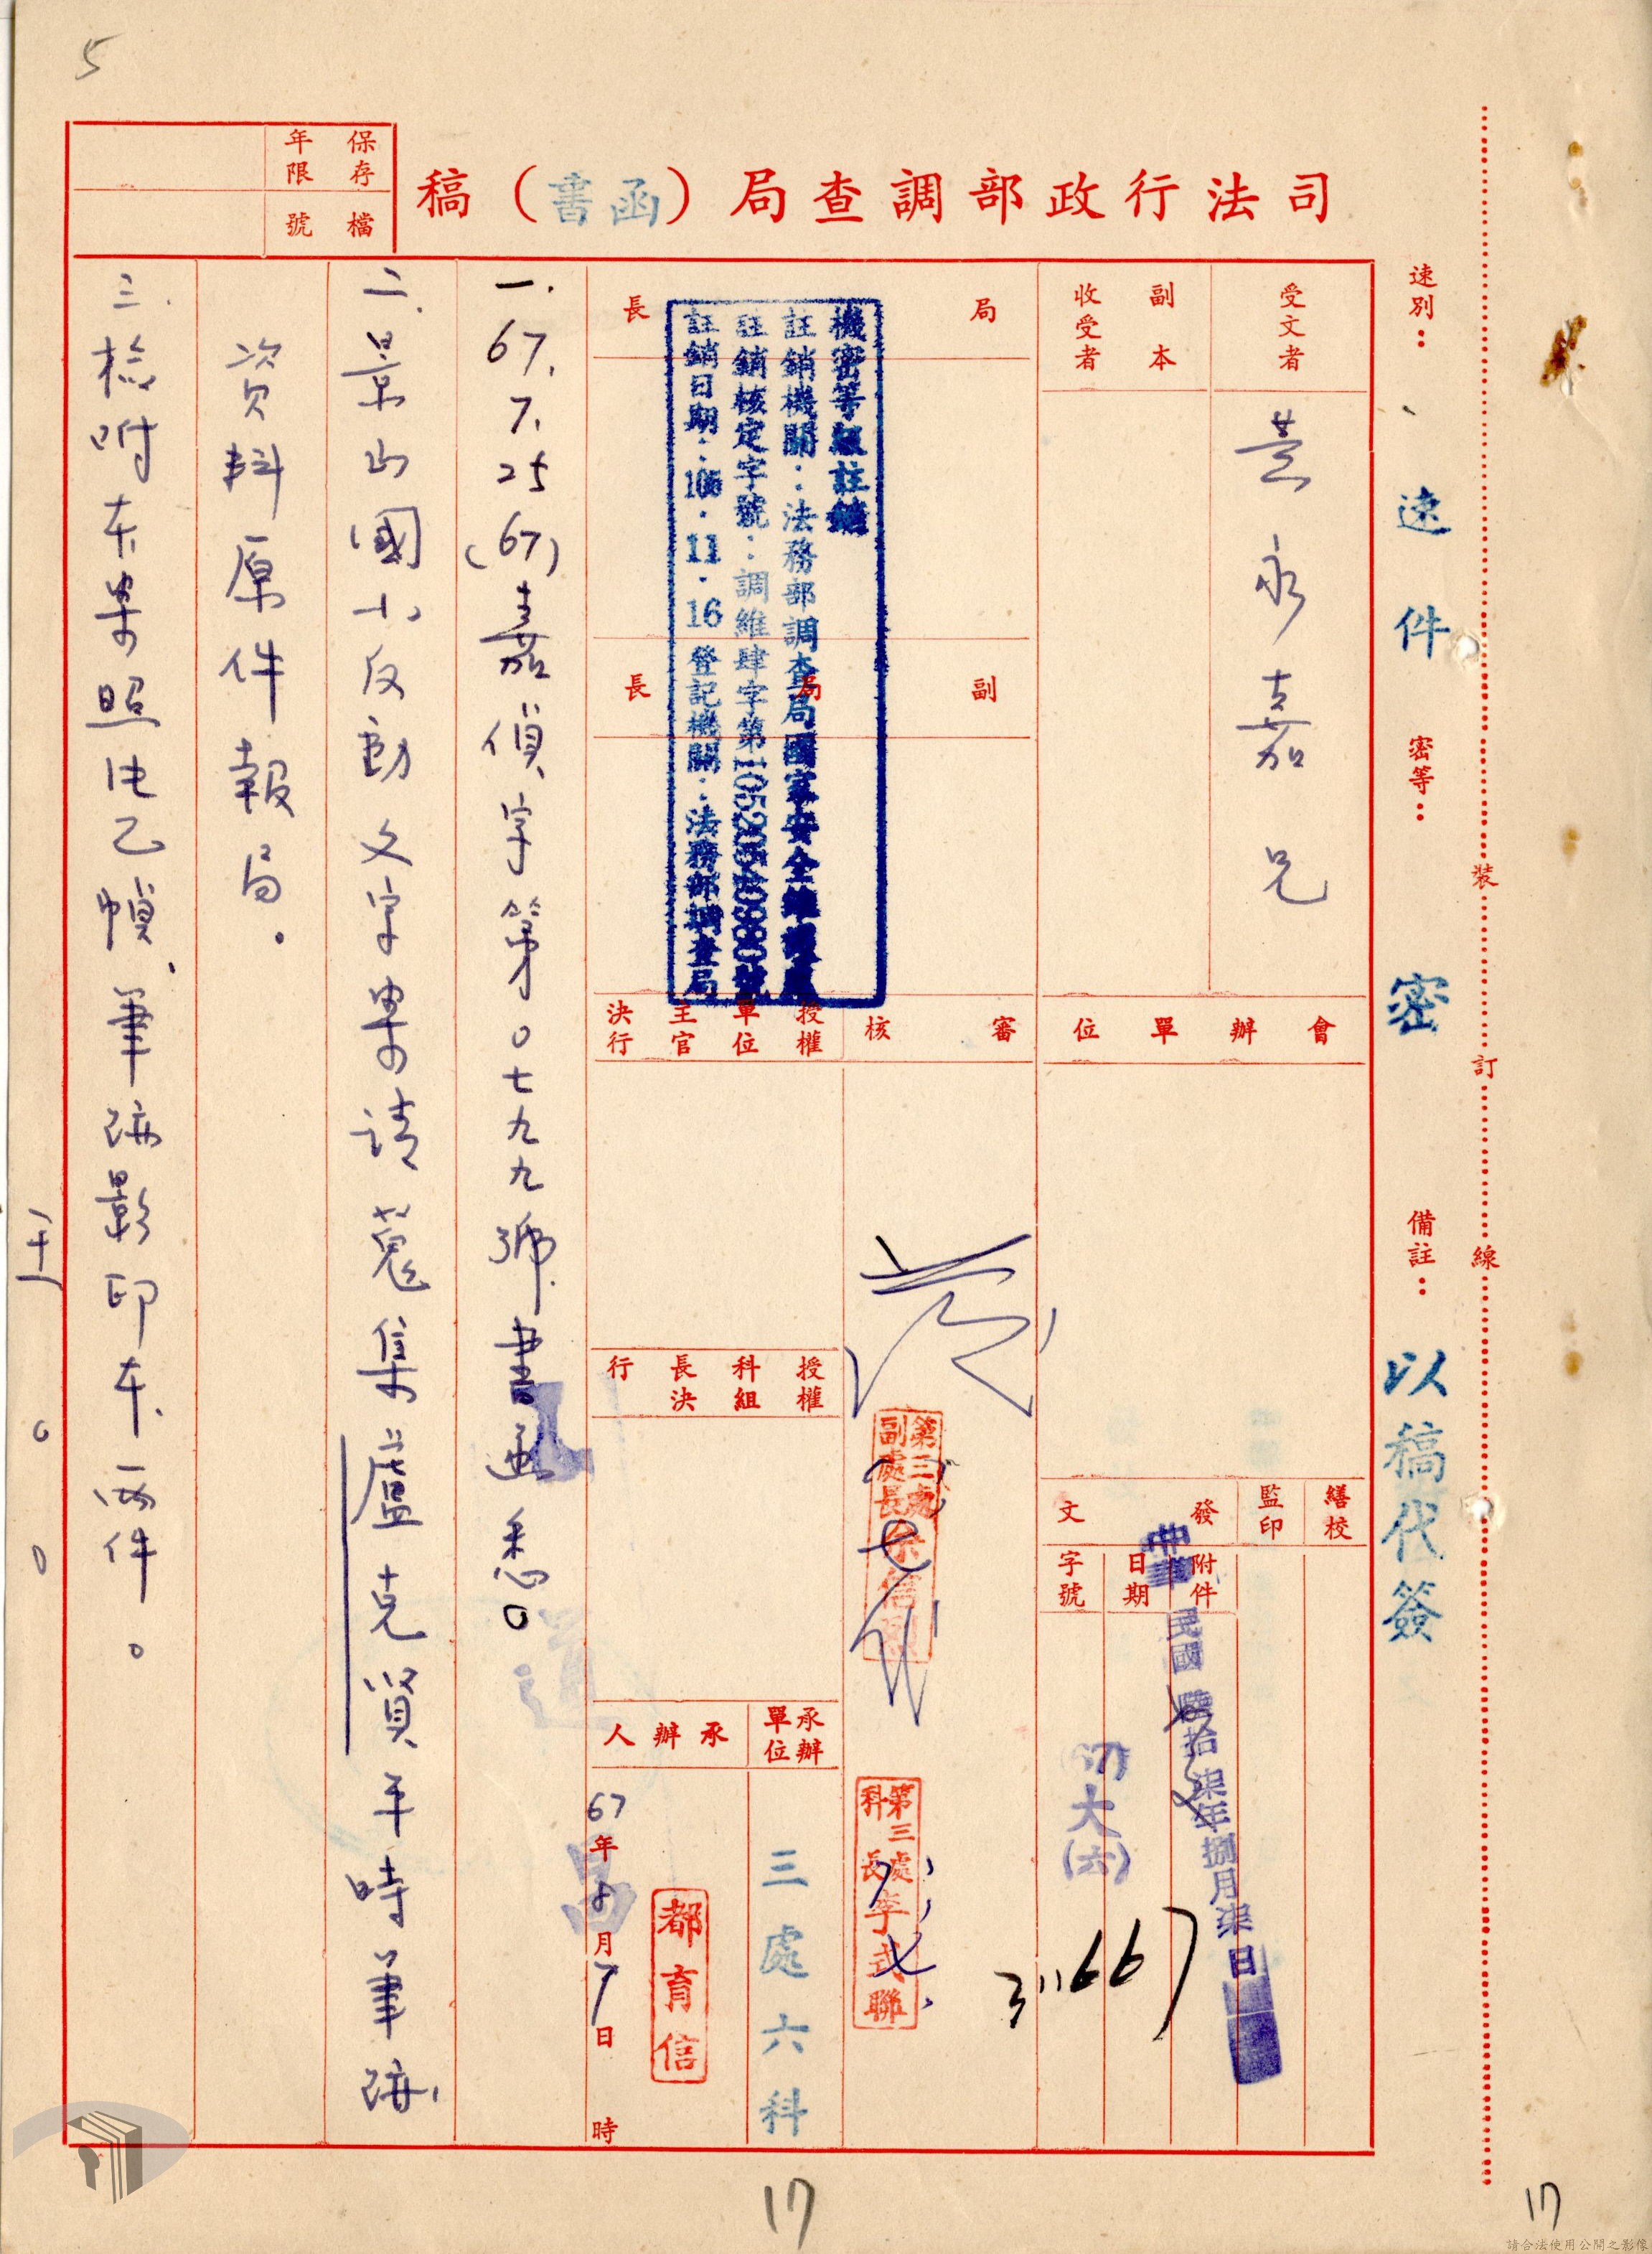 5
司法行政部調查局（函書）稿
保存年限
檔號
速別：速件
密等：密
備註：以稿代簽
裝
訂
線
受文者
永嘉兄
副本收受者
會辦單位
繕校
監印
發文
附件
日期
字號
中華民國 拾柒年捌月柒日
(67)大(六)
局長
副局長
審核
第三處副處長
第三處科長李式聯
授權單位主官決行
授權科組長決行
承辦單位
三處六科
承辦人
都育信
67年8月7日 時
機密等級註銷
註銷機關：法務部調查局國家安全維護處
註銷核定字號：調維肆字第號
註銷日期：106．11．16 登記機關：法務部調查局
一.67.7.25(67)嘉偵字第0七九九號書函悉。
二.景山國小反動文字案請蒐集盧克賢平時筆跡
資料原件報局。
三.檢附本案照片乙幀、筆跡影印本兩件。
17
17
請合法使用公開之影像